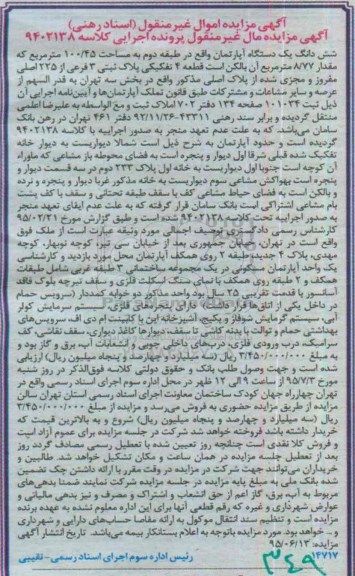 آگهی مزایده اموال غیرمنقول (اسناد رهنی)
آگهی مزایده مال غیرمنقول پرونده اجرایی کلاسه ۹۴۰۲۱۳۸
شش دانگ یک دستگاه آپارتمان واقع در طبقه دوم به مساحت ۱۰۰/۴۵ مترمربع که
مقدار ۸/۷۷ مترمربع آن بالکن است قطعه ۴ تفکیکی پلاک ثبتی ۳ فرعی از ۲۲۵ اصلی
مفروز و مجزی شده از پلاک اصلی مذکور واقع در بخش سه تهران به قدر السهم از
عرصه و سایر مشاعات و مشترکات طبق قانون تملک آپارتمان‌ها و آیین‌نامه اجرایی آن
ذیل ثبت ۱۰۱۰۳۴ صفحه ۱۳۴ دفتر ۷۰۲ املاک ثبت و مع الواسطه به علیرضا اعلمی
منتقل گردیده و برابر سند رهنی ۴۳۳۱۱-۹۲/۱۱/۲۶ دفتر ۴۶۱ تهران در رهن بانک
سامان می‌باشد، که به علت عدم تعهد منجر به صدور اجراییه با کلاسه ۹۴۰۲۱۳۸
گردیده است و حدود آپارتمان به شرح ذیل است شمالا دیواریست به دیوار خانه
تفکیک شده قبلی شرقا اول دیوار و پنجره است به فضای محوطه باز مشاعی که ماوراء
آن کوچه است جنوبا اول دیواریست به خانه اول پلاک ۲۳۳ دوم در سه قسمت دیوار و
پنجره است به هواکش مشاعی سوم دیواریست به خانه مذکور غربا دیوار و پنجره و نرده
و بالکن است به فضای حیاط مشاعی کف با سقف طبقه تحتانی و سقف با کف پشت
بام مشاعی اشتراکی است بانک سامان قرار گرفته که به علت عدم ایفای تعهد منجر
به صدور اجراییه تحت کلاسه ۹۴۰۲۱۳۸ شده است و طبق گزارش مورخ ۹۵/۰۲/۲۱
کارشناس رسمی دادگستری توصیف اجمالی مورد وثیقه عبارت است از ملک فوق
واقع است در تهران، خیابان جمهوری بعد از خیابان سی تیر، کوچه نوبهار، کوچه
مهدی، پلاک ۴ جدید، طبقه ۲ روی همکف آپارتمان محل مورد بازدید و کارشناسی
یک واحد آپارتمان مسکونی در یک مجموعه ساختمانی ۳ طبقه غربی شامل طبقات
همکف و ۲ طبقه روی همکف با نمای سنگ اسکلت فلزی و سقف تیرچه بلوک فاقد
آسانسور با قدمت تقریبی ۲۵ سال بود واحد مذکور دو خوابه کمددار (سرویس حمام
در داخل یکی از اتاق‌ها قرار گرفته)، دارای پنجره‌های فلزی، سیستم سرمایش کولر
آبی، سیستم گرمایش شوفاژ و پکیج، آشپزخانه اپن با کابینت ام دی اف، سرویس‌های
بهداشتی حمام و توالت با بدنه کاشی تا سقف، دیوارها کاغذ دیواری، سقف نقاشی، کف
سرامیک، درب ورودی فلزی، درب‌های داخلی چوبی و انشعابات آب، برق و گاز بود و
به مبلغ ۳/۴۵۰/۰۰۰/۰۰۰ ریال (سه میلیارد و چهارصد و پنجاه میلیون ریال) ارزیابی
شده است و جهت وصول طلب بانک و حقوق دولتی کلاسه فوق‌الذکر در روز شنبه
مورخ ۹۵/۷/۳ از ساعت ۹ الی ۱۲ ظهر در محل اداره سوم اجرای اسناد رسمی واقع در
تهران چهارراه جهان کودک ساختمان معاونت اجرای اسناد رسمی استان تهران سالن
مزایده از طریق مزایده حضوری به فروش می‌رسد و مزایده از مبلغ ۳/۴۵۰/۰۰۰/۰۰۰
ریال (سه میلیارد و چهارصد و پنجاه میلیون ریال) شروع و به بالاترین قیمت که
خریدار داشته باشد فروخته خواهد شد شرکت در جلسه مزایده برای عموم آزاد است
و فروش کلا نقدی است چنانچه روز تعیین شده با تعطیل رسمی مصادف گردد روز
بعد از تعطیل جلسه مزایده در همان ساعت و مکان تشکیل خواهد شد. طالبین و
خریداران می‌توانند جهت شرکت در مزایده در وقت مقرر با ارائه داشتن چک تضمین
شده بانک ملی به مبلغ پایه مزایده در جلسه مزایده شرکت نمایند ضمنا بدهی‌های
مربوط به آب، برق، گاز اعم از حق انشعاب و اشتراک و مصرف و نیز بدهی مالیاتی و
عوارض شهرداری و غیره که رقم قطعی آنها برای این اداره معلوم نشده به عهده برنده
مزایده است و تنظیم سند انتقال موکول به ارائه مفاصا حساب‌های دارایی و شهرداری
و... خواهد بود. مورد مزایده باتوجه به اعلام بستانکار بیمه می‌باشد. تاریخ انتشار آگهی
مزایده: ۹۵/۰۶/۱۳
۱۴۷۱۷ رئیس اداره سوم اجرای اسناد رسمی-نقیبی
۳۴۹